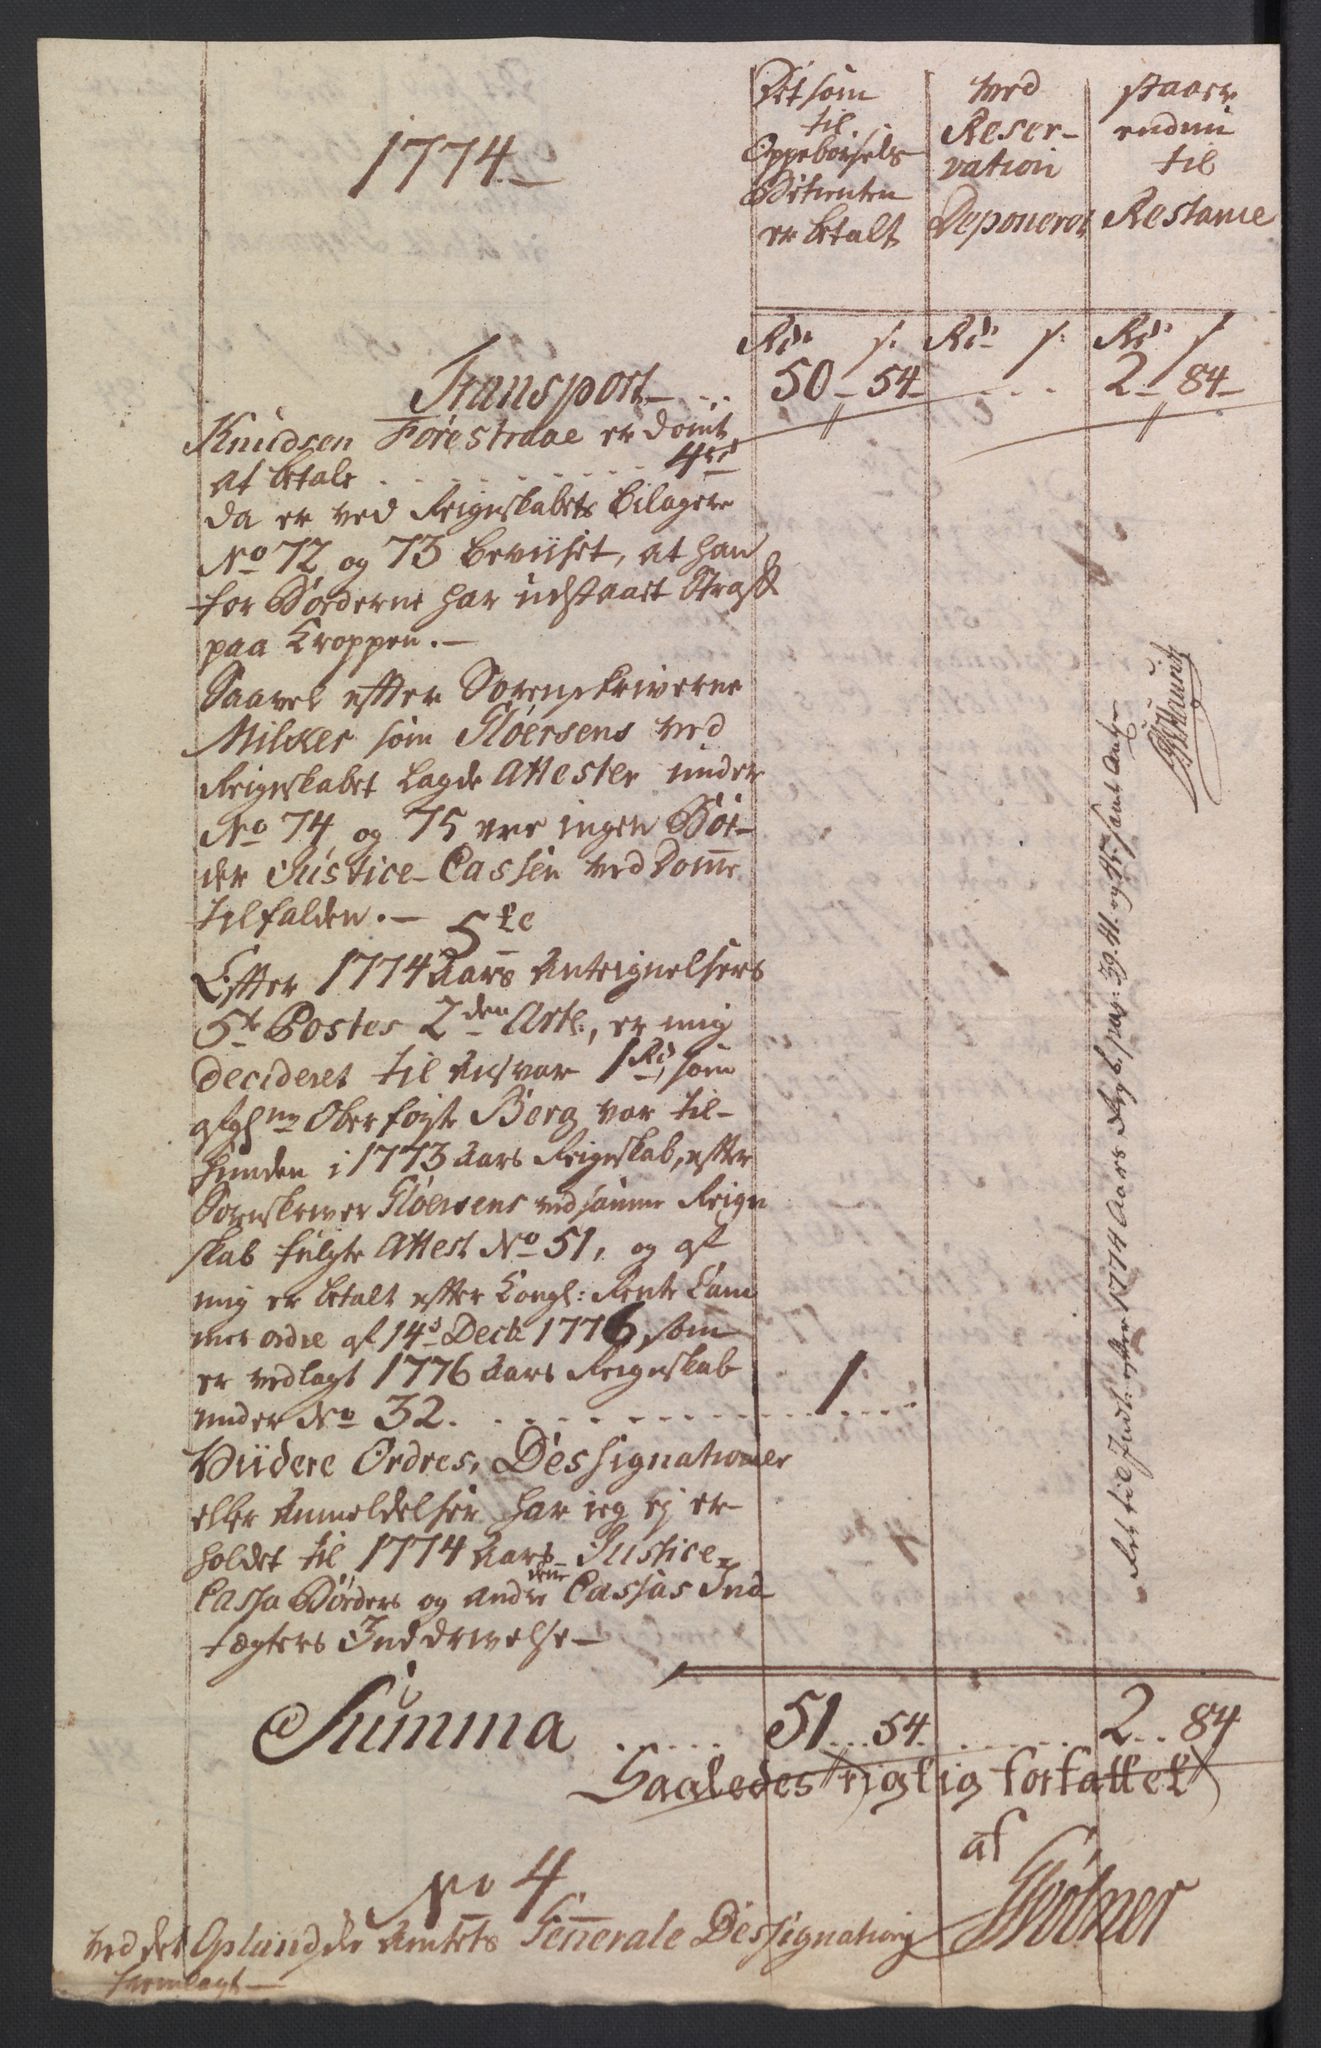 1774
Det som
til
Oppebørsels
Betienten
er betalt
ved
Reser-
vation
Deponeret
staaer
endnu
til
Restance
Rd. s. Rd. s. Rd. s
Transport 50 - 54 - 2 - 84 -
Knudsen Forestraae er dømt
at betale 4 rd
da er ved Reignskabets bilager
No 72 og 73 beviiset, at han
for Bøderne har udstaaet Straf
paa Kroppen. -
Saavel efter Sorenskriverne
som Gløersens ved
Reignskabet lagde Attester under
No 74 og 75 ere ingen Bøe-
der Justice-Cassen ved Domme
tilfalden. -
5te
Efter 1774 Aars Anteignelsers
5te Postes 2den Art:, er mig
decideret til Ansvar 1 Rd, som
afgl ne Oberfogte Berg var til-
funden i 1773 Aars Reignskab, efter
Sorenskriver Gløersens ved samme Reign
skab fulgte Attest No 51, og af
mig er betalt efter Kongl: Rente Cam
mer ordre af 14de Decb. 1776, som
er vedlagt 1776 Aars Reignskab
under No 32. 1
Viidere Ordres, Dessignationer
eller Anmeldelser har jeg ej er-
holdet til 1774 Aars Justice-
Cassa Bøeders og andre denne Cassas Ind
tægters Inddrivelse -
Summa 51 54 2 84
Saaledes rigtig forfattet
af
No 4
ved det Oplandske Amtets Generale Dessignation
fremlagt -
Ret til Indt: efter 1774 Aars pag: 39. 41. og 45 samt